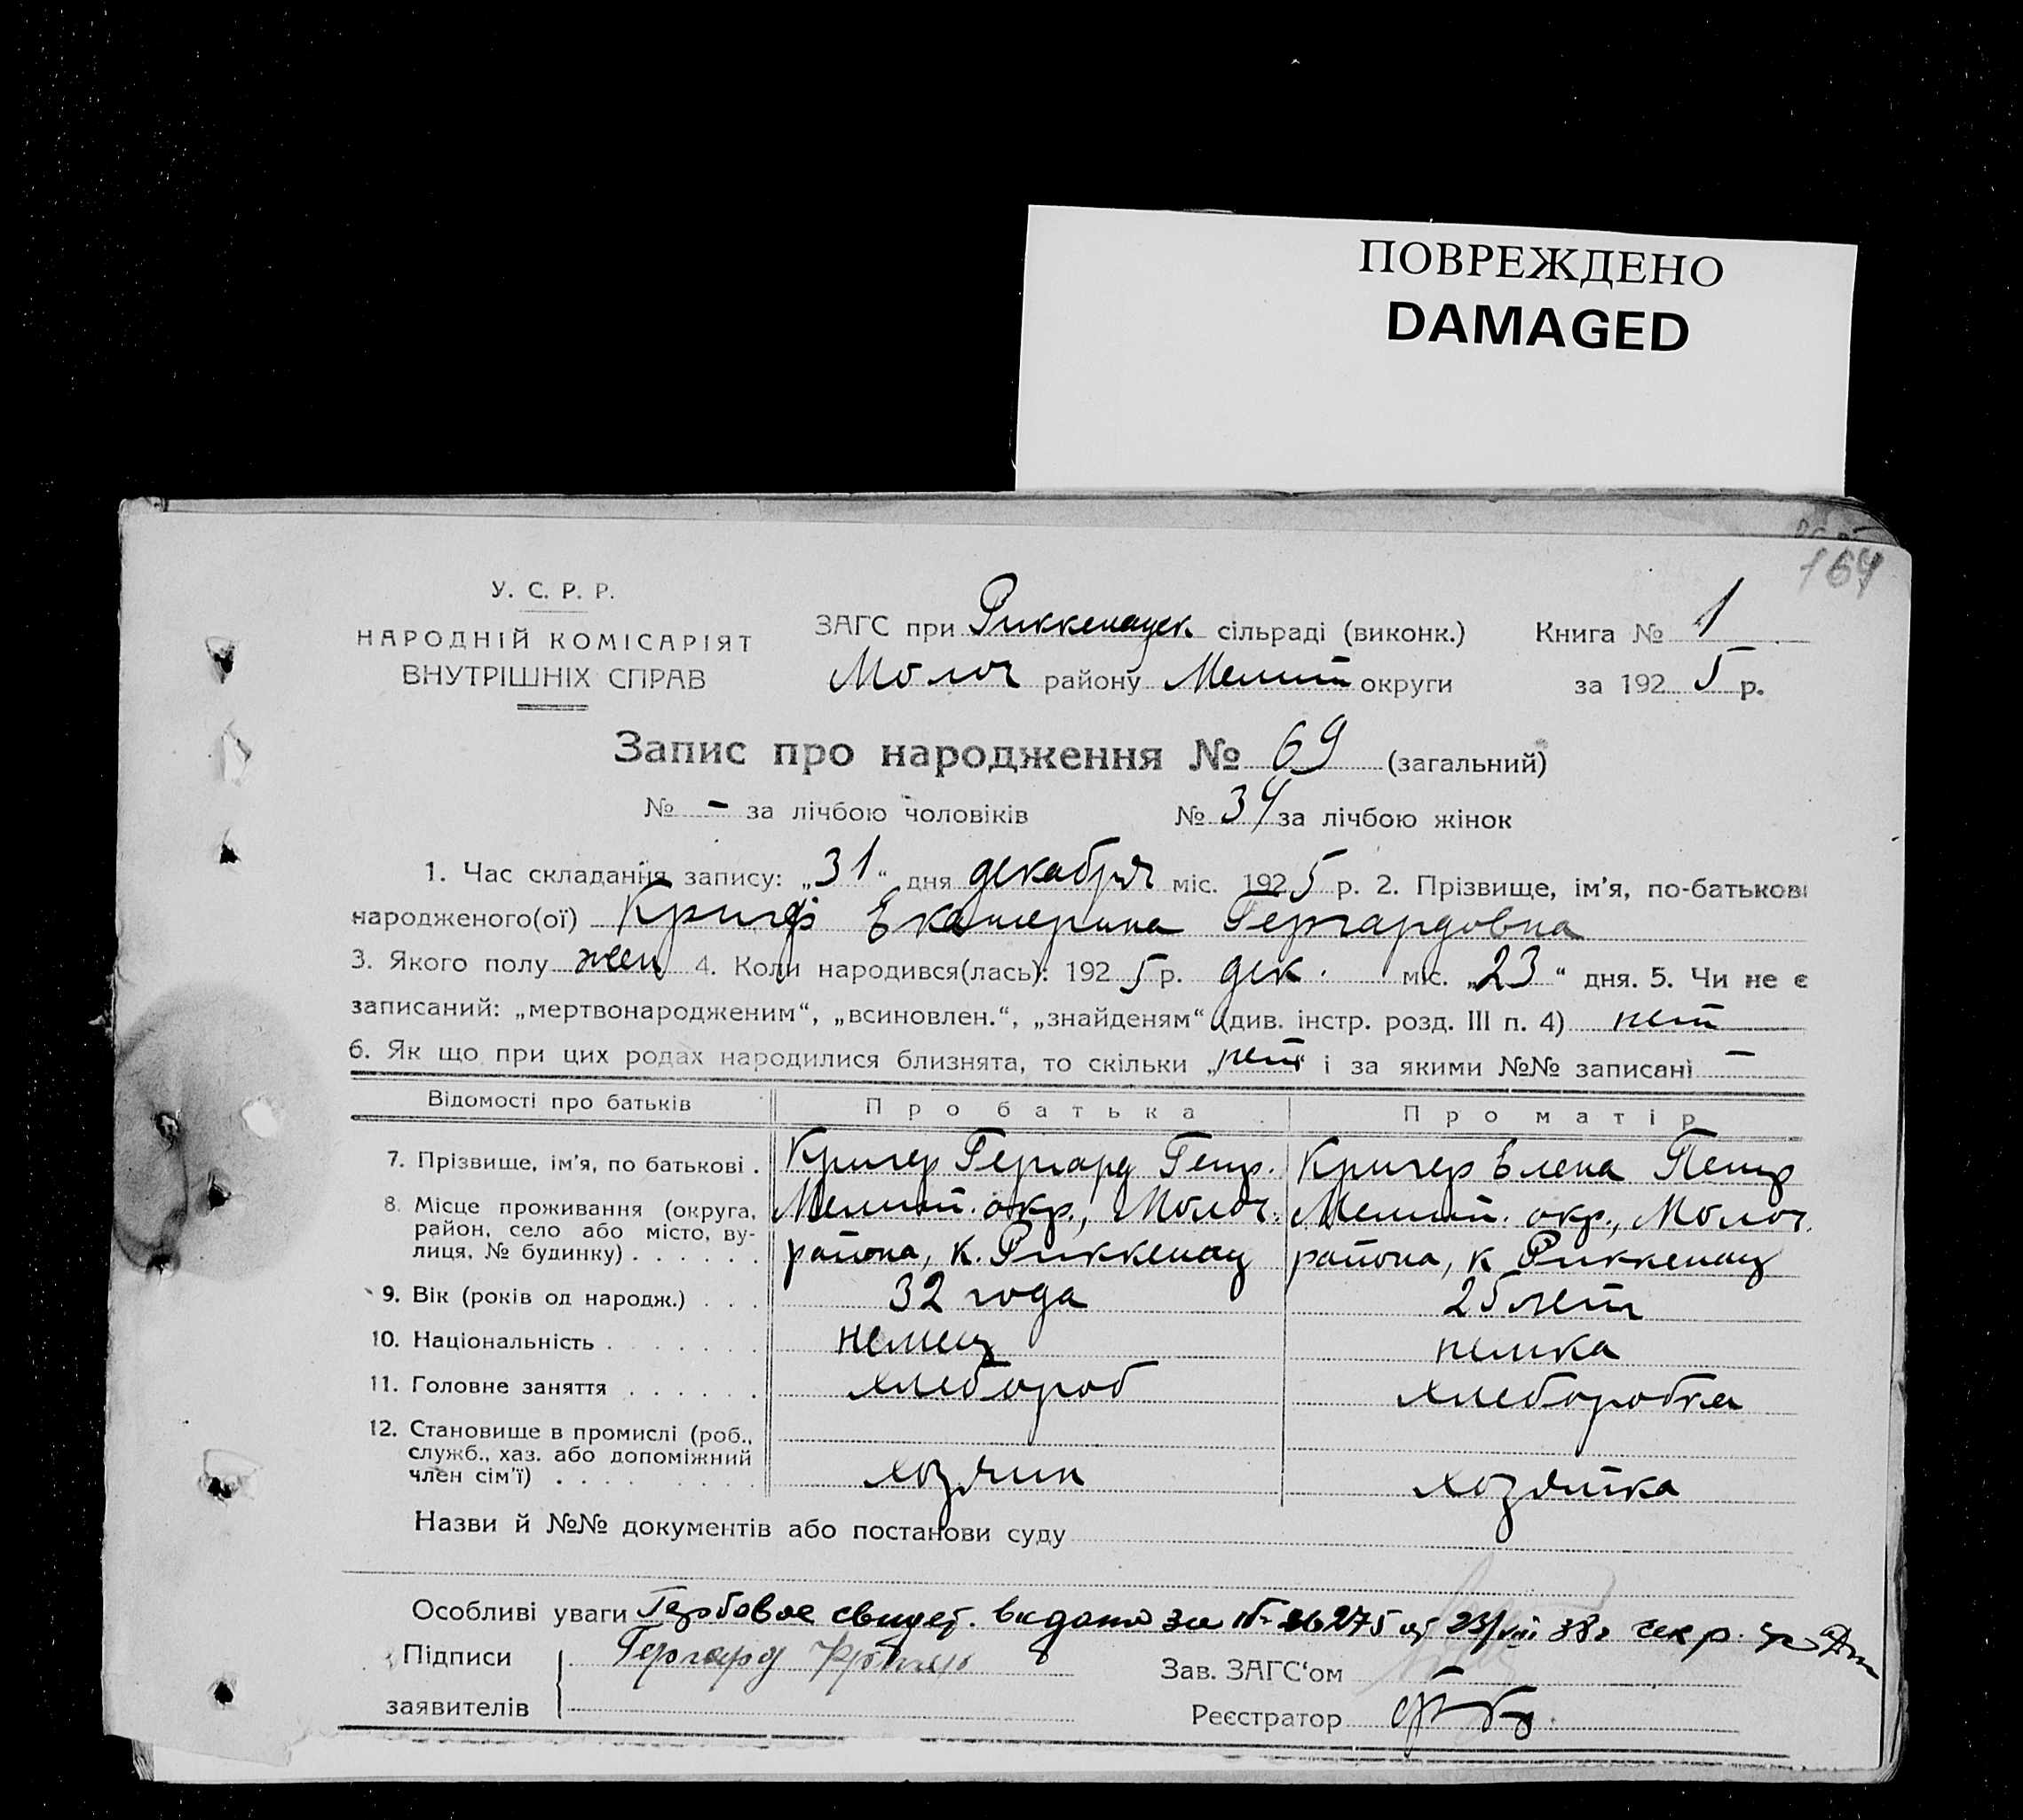 ПОВРЕЖДЕНО
DAMAGED
164
У. С. Р. Р.
НАРОДНІЙ КОМІСАРІЯТ
ВНУТРІШНІХ СПРАВ
ЗАГС при Риккенауск. сільраді (виконк.) Книга № 1
Молоч району Мелит округи за 1925 р.
Запис про народження № 69 (загальний)
№ - за лічбою чоловіків № 34 за лічбою жінок
1. Час складання запису: „31“ дня декабря міс. 1925 р. 2. Прізвище, ім'я, по-батькові
народженого(ої) Екатерина Гергардовна
3. Якого полу жен 4. Коли народився(лась): 1925 р. дек. міс. „23“ дня. 5. Чи не є
записаний: „мертвонародженим“, „всиновлен.“, „знайденям“ (див. інстр. розд. III п. 4) нет
6. Як що при цих родах народилися близнята, то скільки „нет“ і за якими №№ записані —
Відомості про батьків Про батька Про матір
7. Прізвище, ім'я, по батькові . Кригер Гергард Генр. Кригер Елена Петр
8. Місце проживання (округа, район, село або місто, вулиця, № будинку) . . . . . . Мелит. окр., Молоч. района, к. Риккенау Мелит. окр., Молоч. района, к Риккенау
9. Вік (років од народж.) . . . 32 года 25 лет
10. Національність . . . . . . . немец немка
11. Головне заняття . . . . . . хлебороб хлеборобка
12. Становище в промислі (роб., служб., хаз. або допоміжний член сім'ї) . . . . . . . хозяин хозяйка
Назви й №№ документів або постанови суду
Особливі уваги Гербовое свидет. видано за № 275 от 23/VIII 38г секр.
Підписи Гергард Зав. ЗАГС‘ом
заявителів Реєстратор